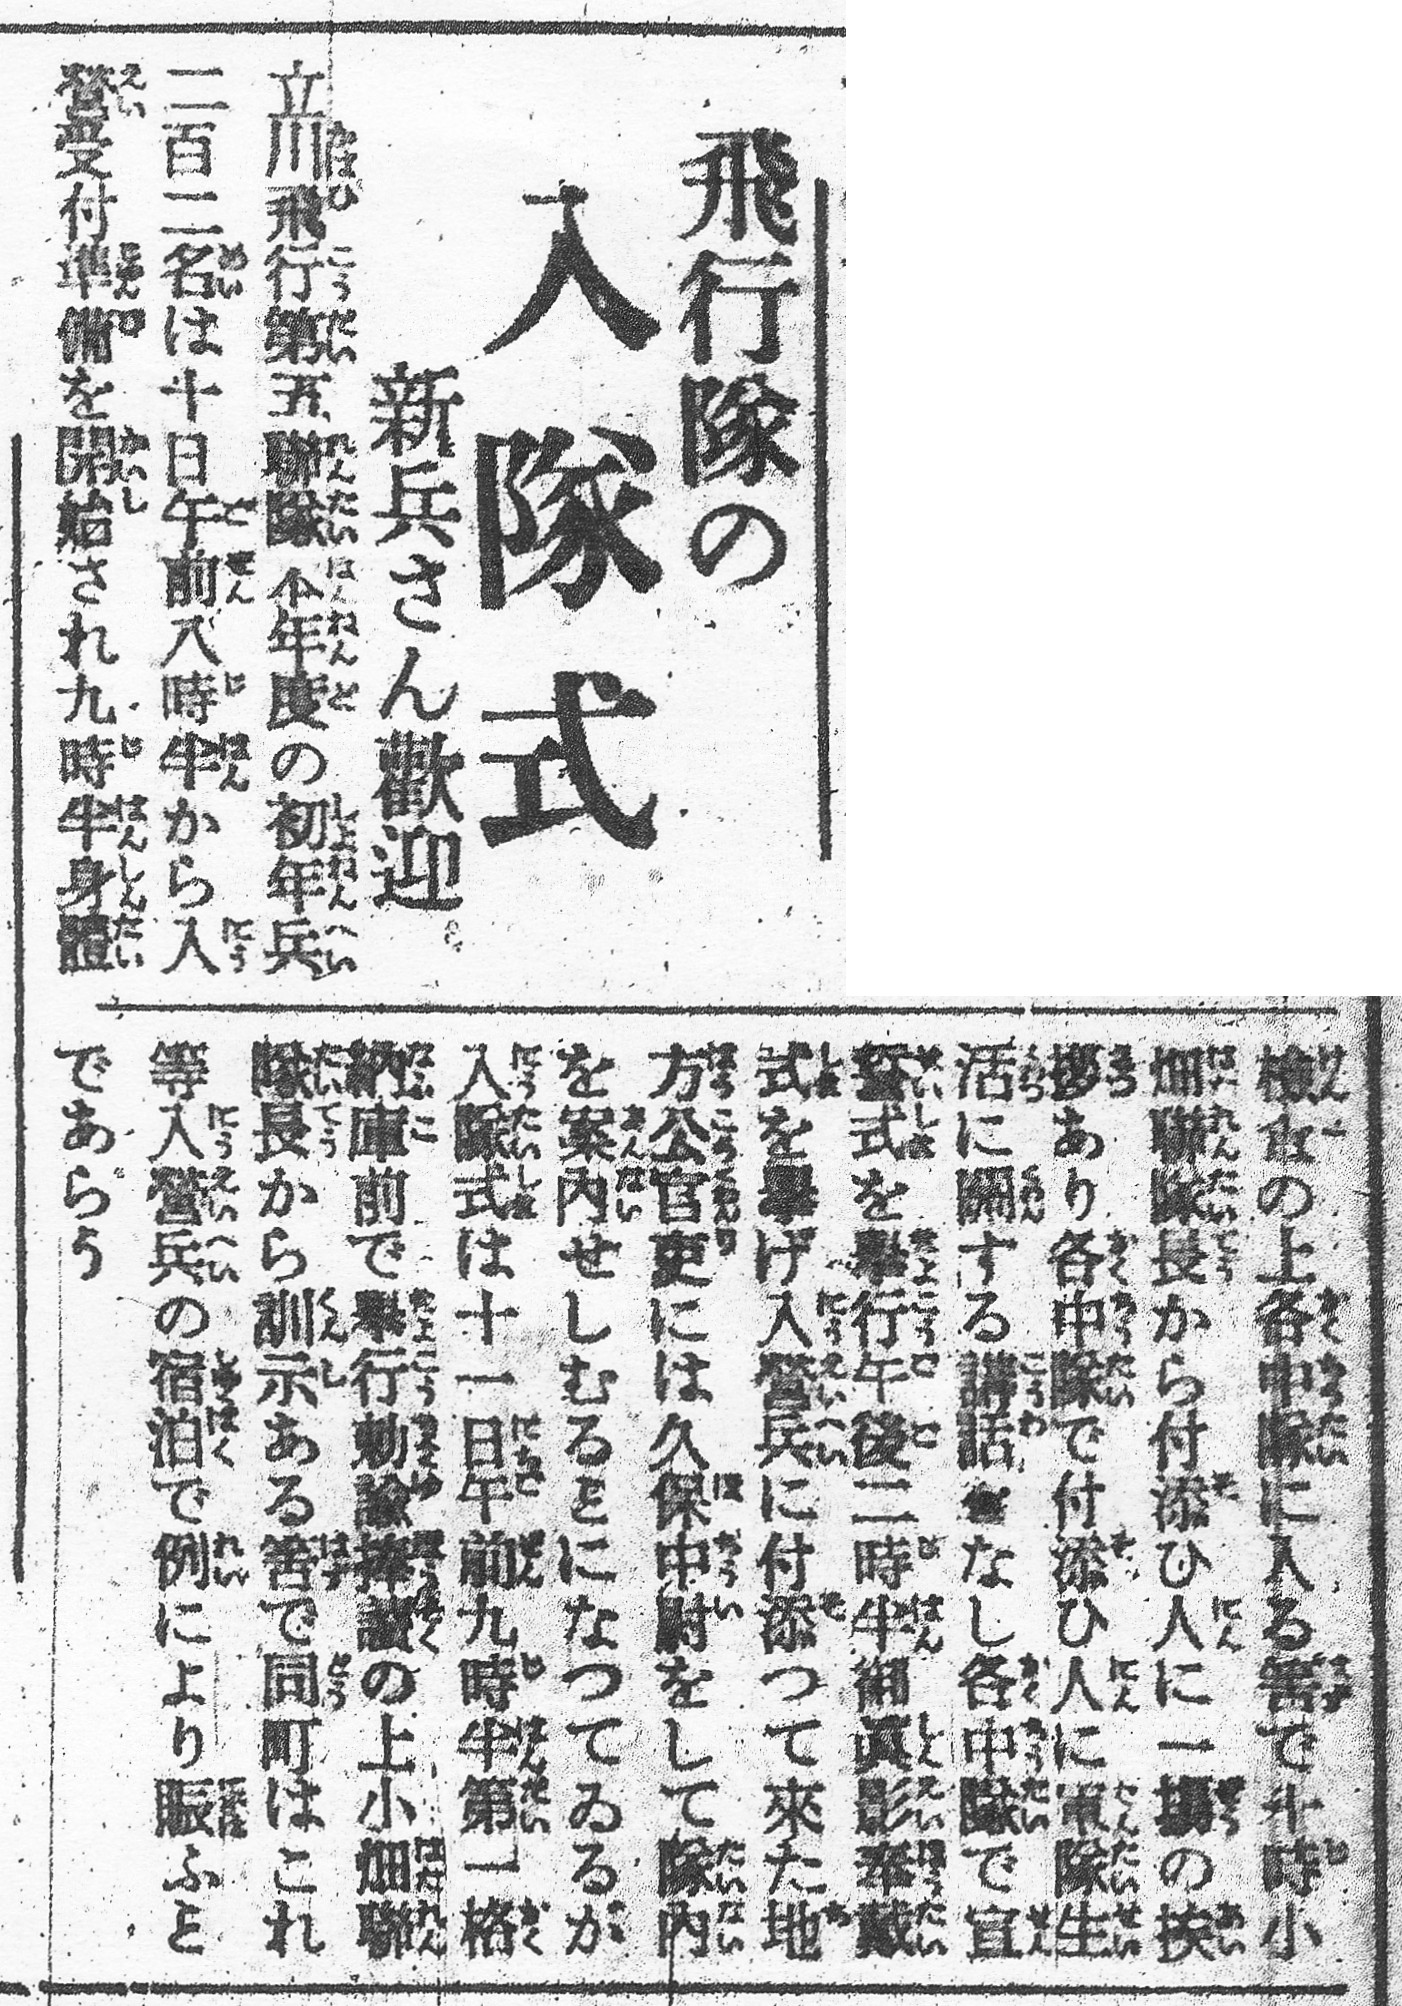 飛行隊の
入隊式
新兵さん歡迎
立川飛行第五聯隊本年度の初年兵
二百二名は十日午前八時半から入
營受付準備を開始され九時半身體
檢査の上各中隊に入る筈で十時小
畑聯隊長から付添ひ人に一場の挨
拶あり各中隊で付添ひ人に軍隊生
活に關する講話をなし各中隊で宣
誓式を擧行午後二時半御眞影奉戴
式を擧げ入營兵に付添つて來た地
方公官吏には久保中尉をして隊內
を案內せしむるとになつてゐるが
入隊式は十一日午前九時半第一格
納庫前で擧行勅諭捧讀の上小畑聯
隊長から訓示ある筈で同町はこれ
等入營兵の宿泊で例により賑ふと
であらう